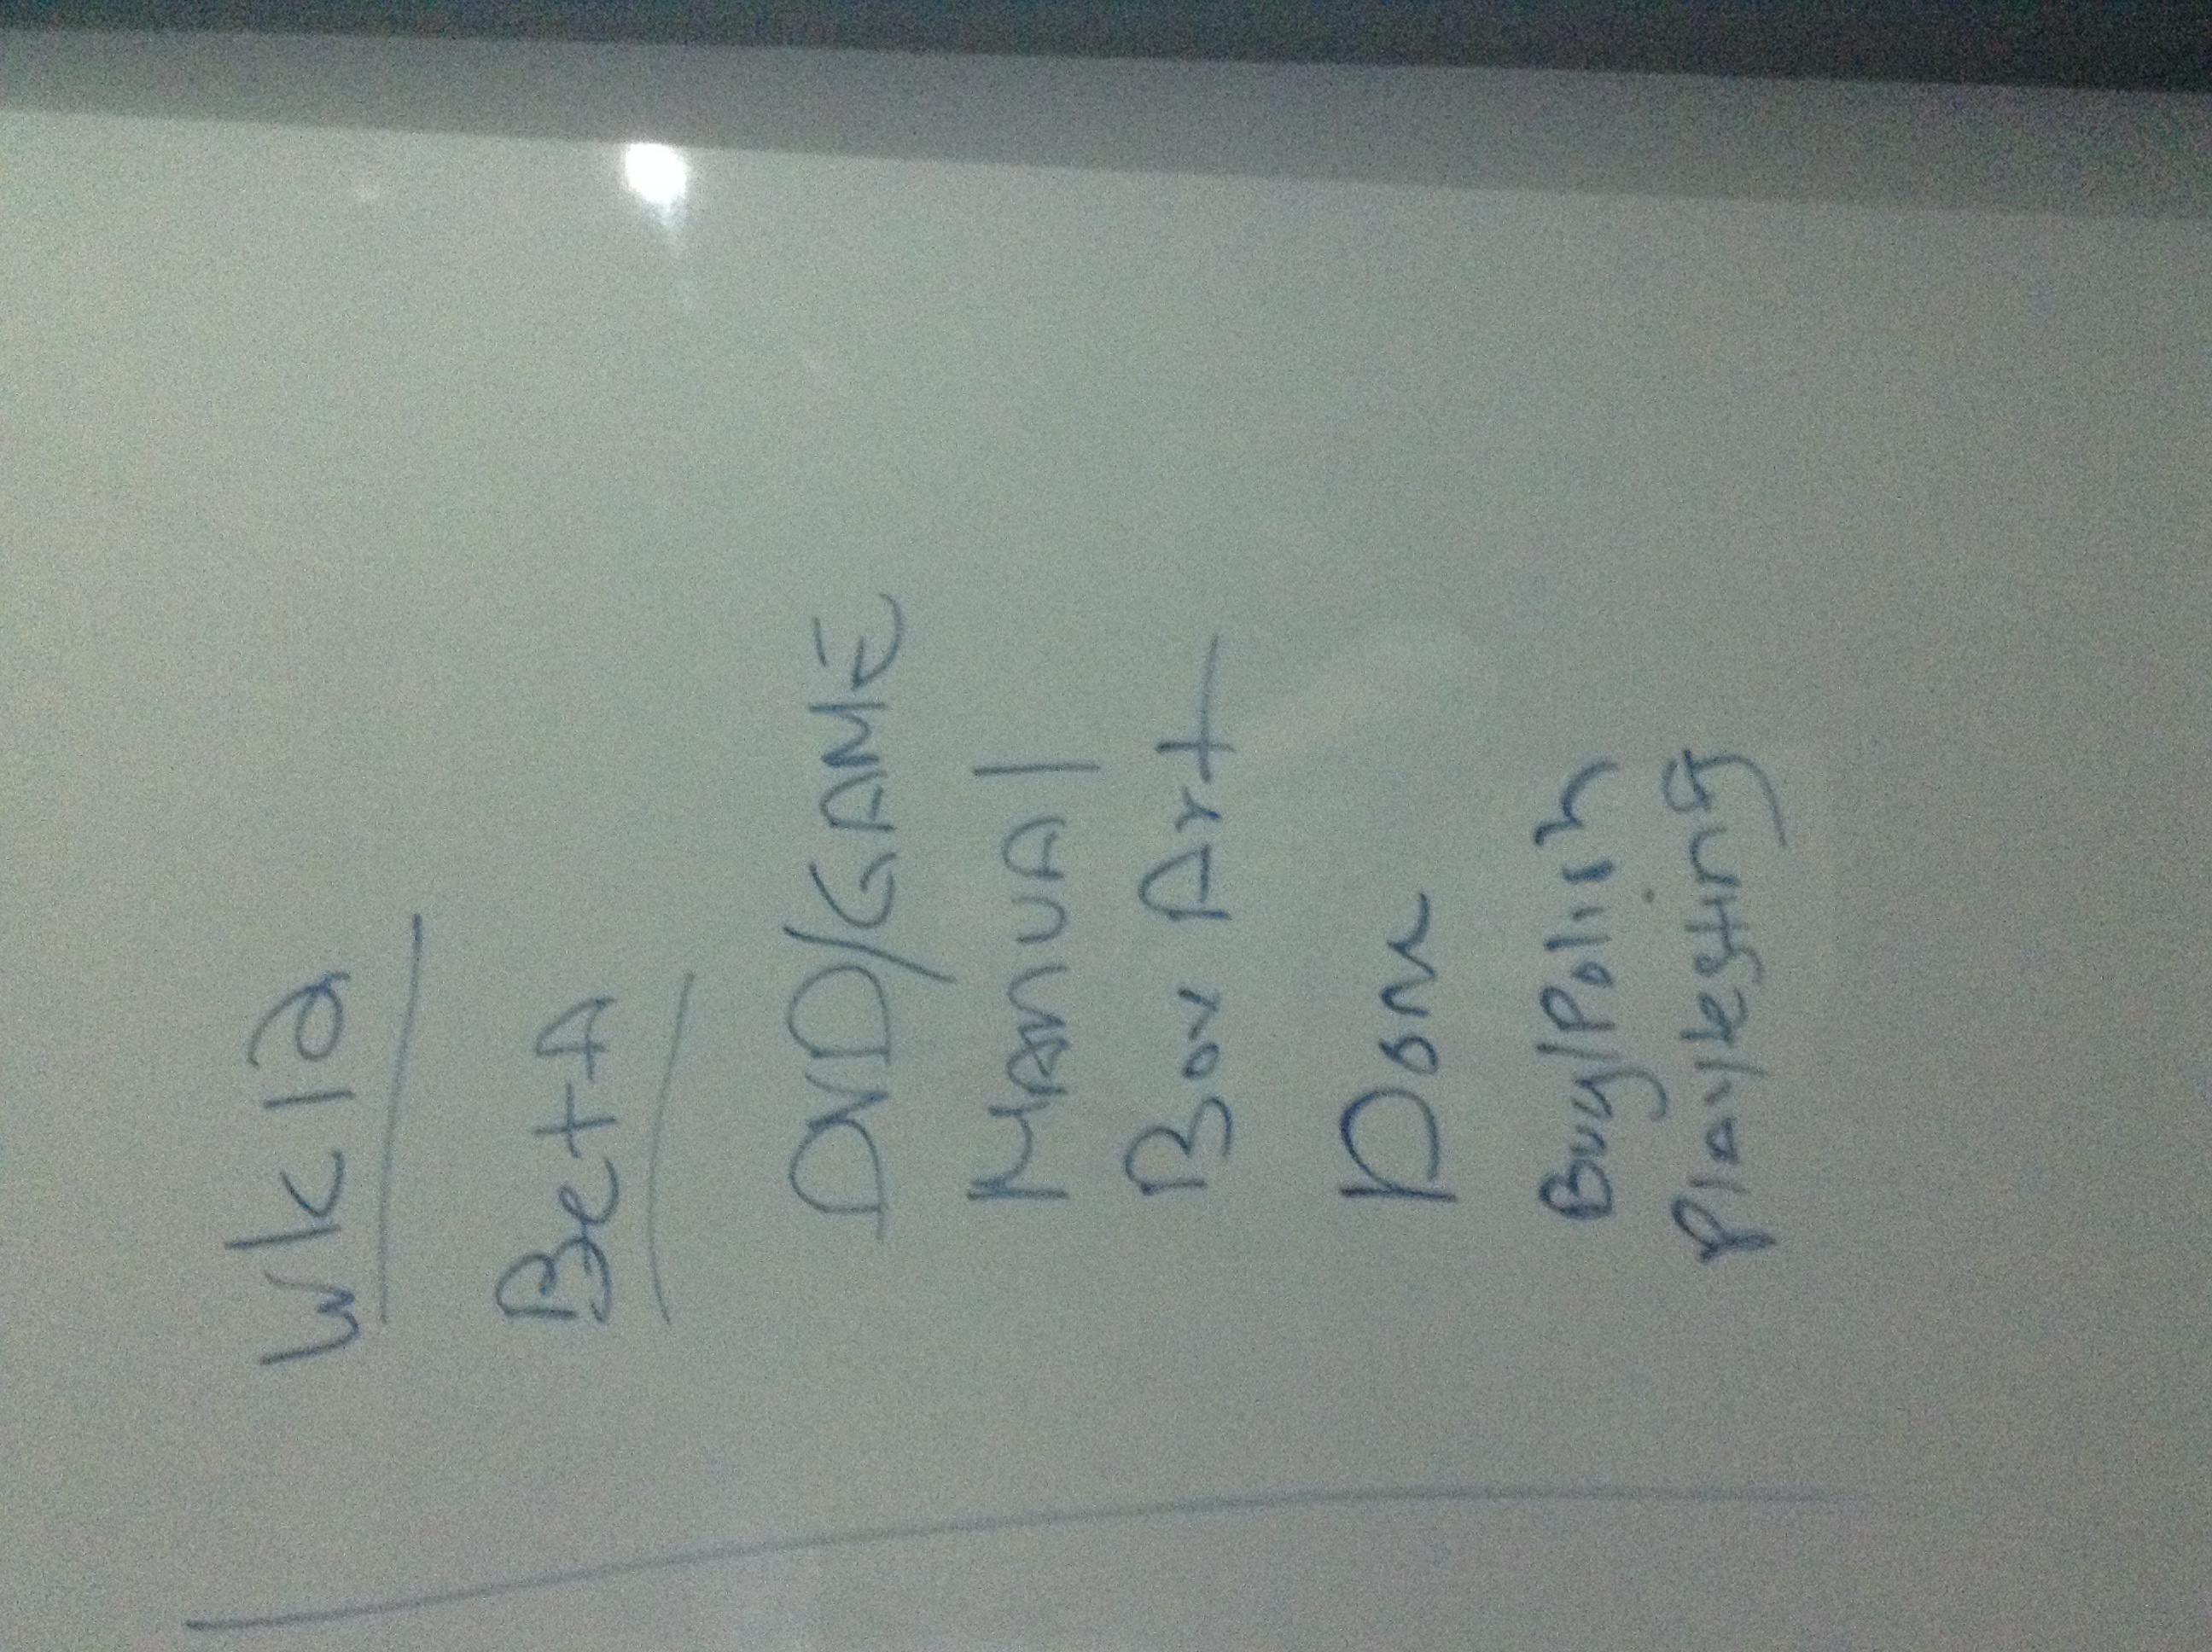 Wk 12
BetA
DVD/GAME
MANUAl
Box Art
Done
Bug/Polish
Playtesting